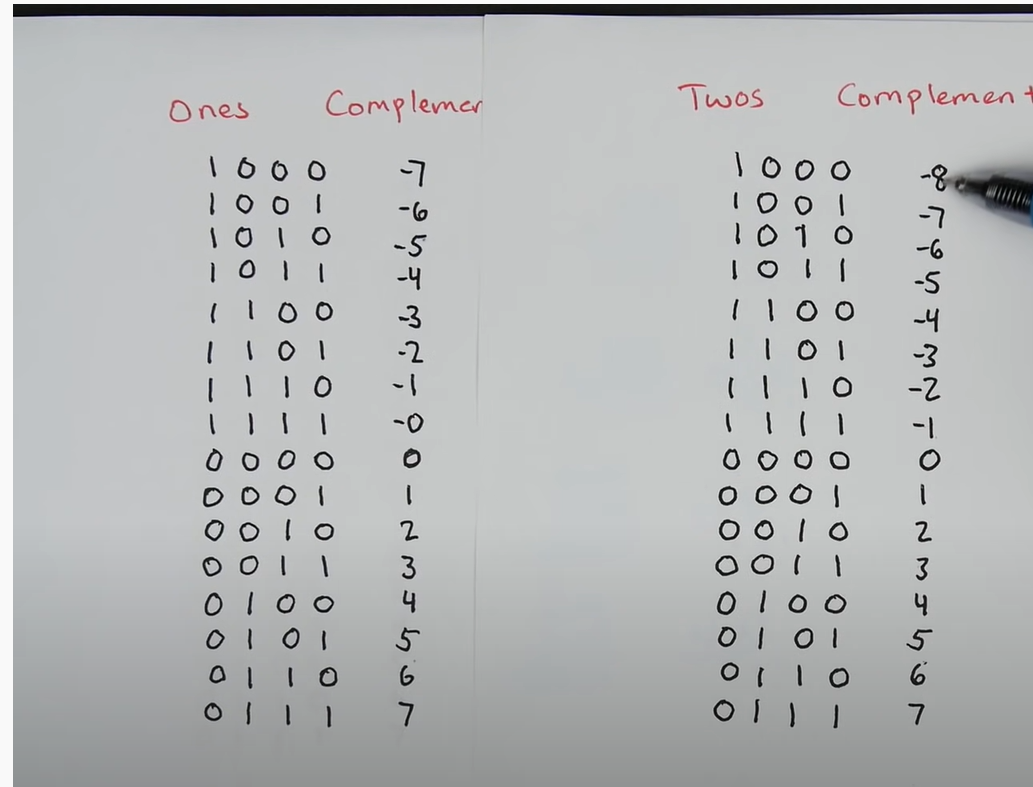 Ones Complemer
1 0 0 0 -7
1 0 0 1 -6
1 0 1 0 -5
1 0 1 1 -4
1 1 0 0 -3
1 1 0 1 -2
1 1 1 0 -1
1 1 1 1 -0
0 0 0 0 0
0 0 0 1 1
0 0 1 0 2
0 0 1 1 3
0 1 0 0 4
0 1 0 1 5
0 1 1 0 6
0 1 1 1 7
Twos Complement
1 0 0 0 -8
1 0 0 1 -7
1 0 1 0 -6
1 0 1 1 -5
1 1 0 0 -4
1 1 0 1 -3
1 1 1 0 -2
1 1 1 1 -1
0 0 0 0 0
0 0 0 1 1
0 0 1 0 2
0 0 1 1 3
0 1 0 0 4
0 1 0 1 5
0 1 1 0 6
0 1 1 1 7